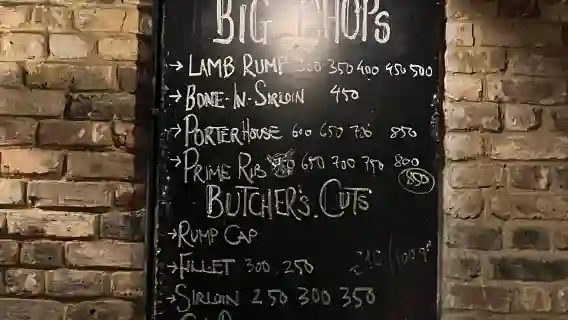 BIG CHOPS
→ LAMB RUMP 300 350 400 450 500
→ BONE-IN-SIRLOIN 450
→ PORTERHOUSE 600 650 700 850
→ PRIME RIB 650 700 750 800
850
BUTCHER'S CUTS
→ RUMP CAP
→ FILLET 300, 250
→ SIRLOIN 250 300 350